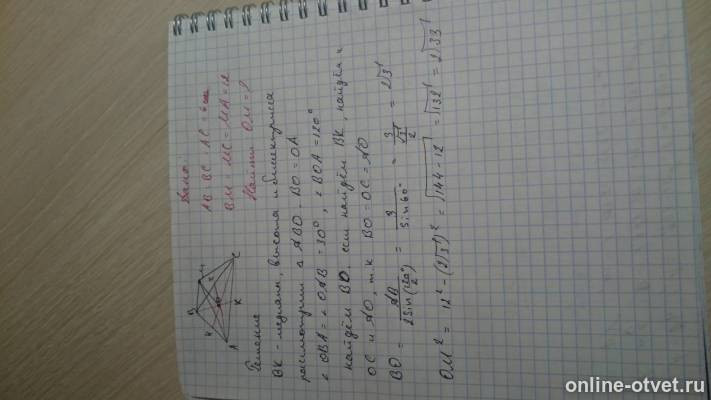 Дано:
AB=BC=AC=6см
BM=MC=MA=12
Найти OM=?
B M
O
A K C
Решение
BK - медиана, высота и биссектриса
рассмотрим △ ABO. BO=OA
∠ OBA = ∠ OAB = 30°, ∠ BOA = 120°
найдём BO. если найдём BK, найдём и
OC и AO, т.к BO=OC=AO
BO = AB / 2Sin(120°/2) = 3 / Sin60° = 3 / (√3/2) = 2√3
OM² = 12² - (2√3)² = √144-12 = √132 = 2√33
online-otvet.ru